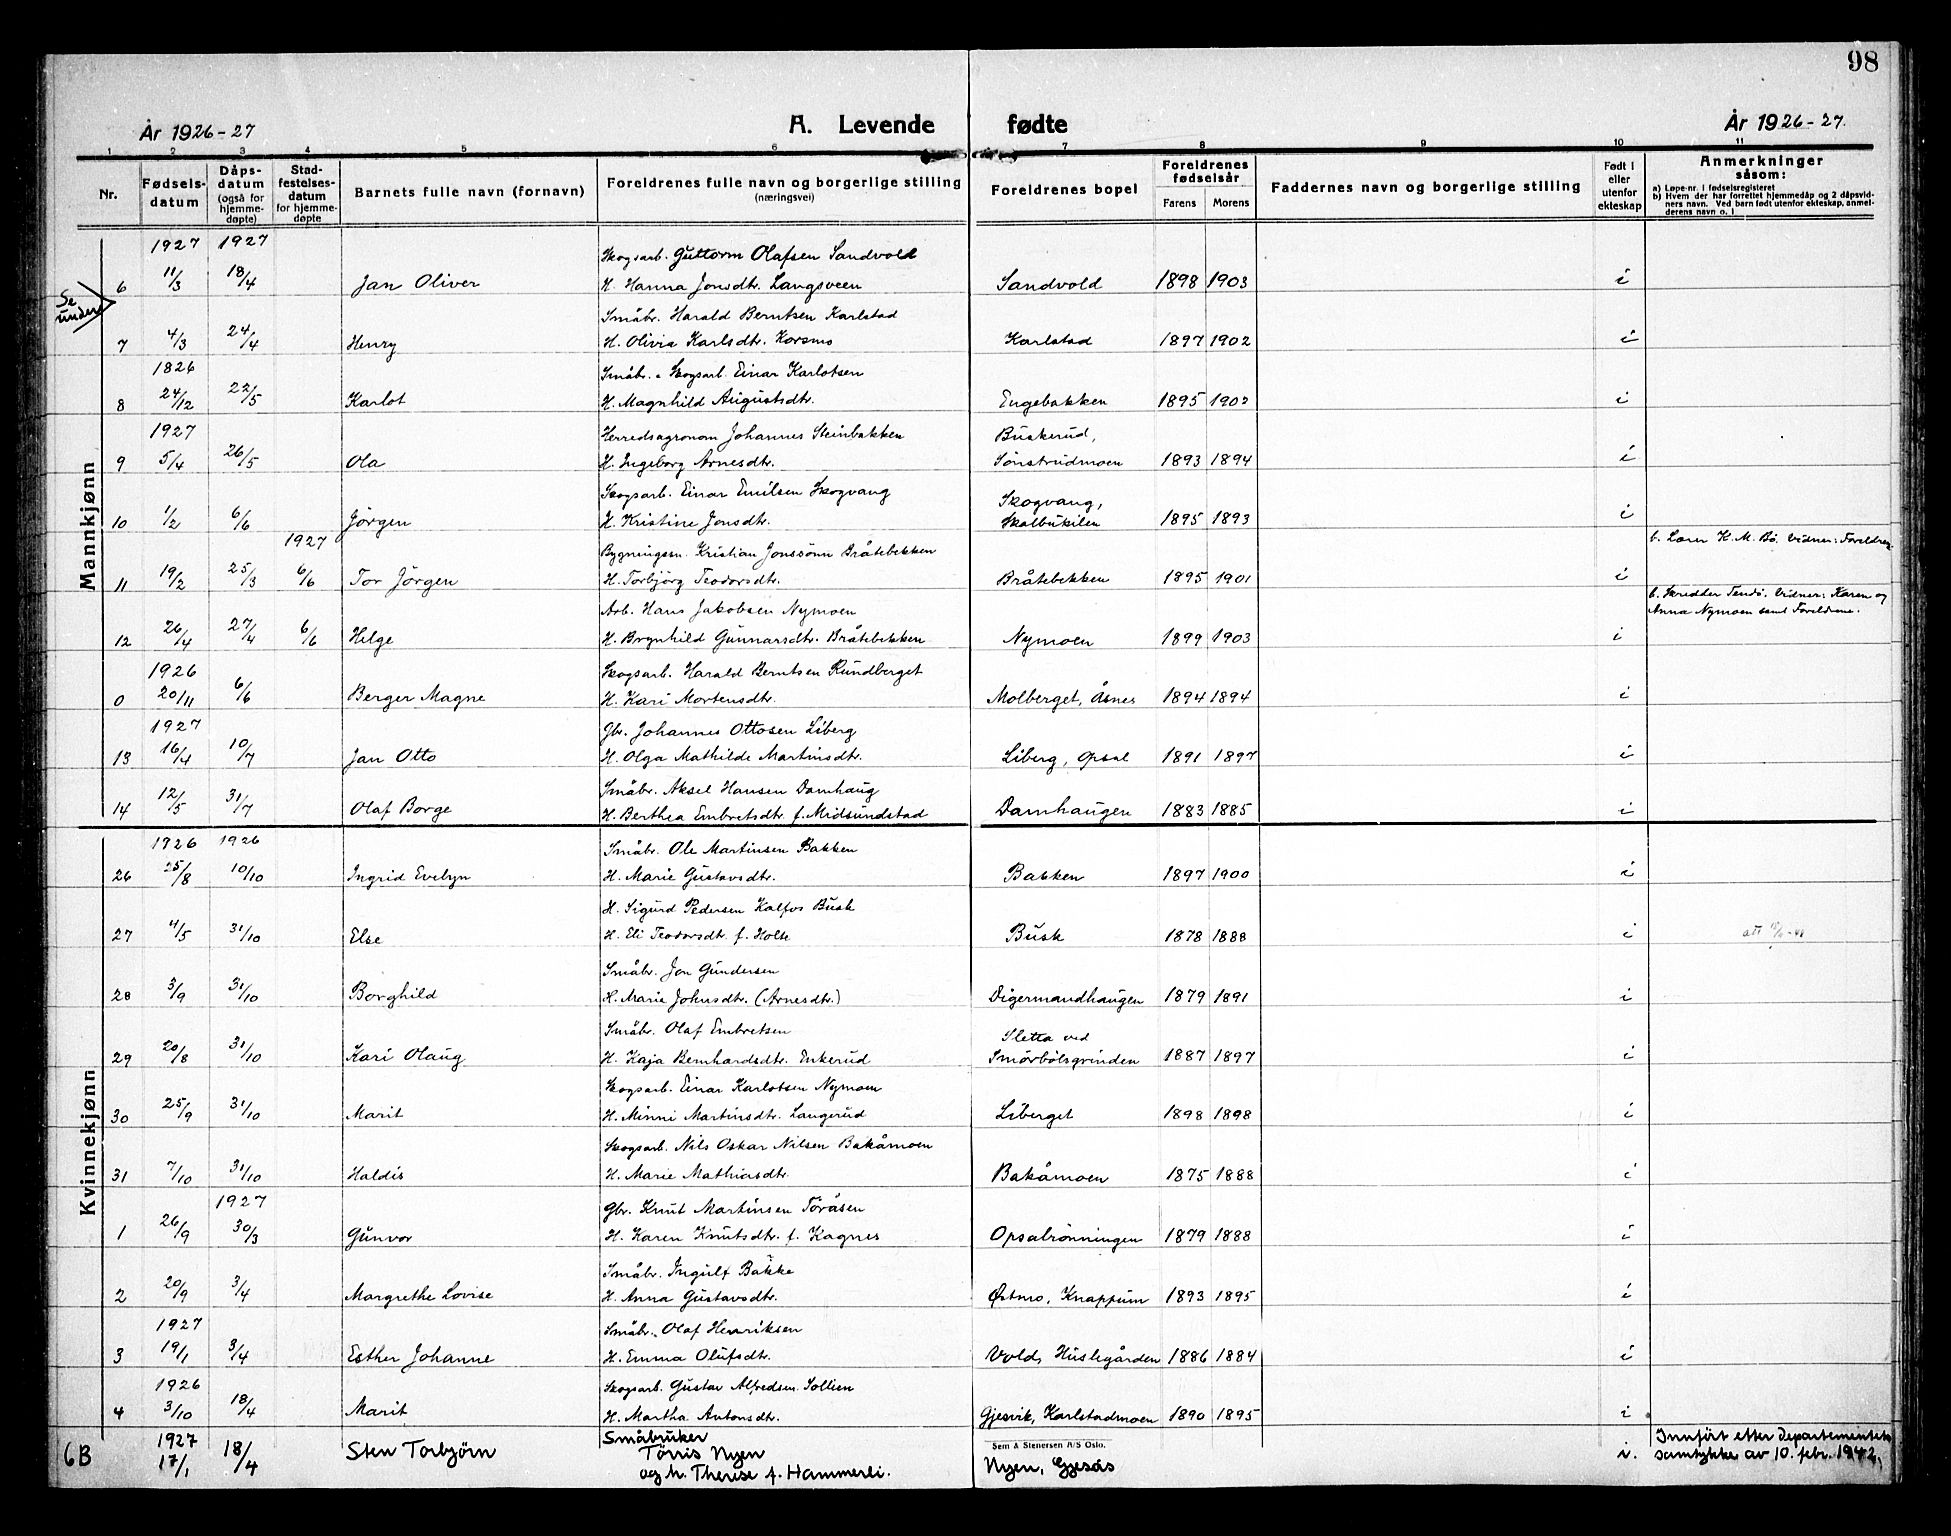 98
År 1926-27
A. Levende fødte
År 1926-27.
1 2 3 4 5 6 7 8 9 10 11
Nr.
Fødsels-
datum
Dåps-
datum
(også for
hjemme-
døpte)
Stad-
festelses-
datum
for hjemme-
døpte
Barnets fulle navn (fornavn)
Foreldrenes fulle navn og borgerlige stilling
(næringsvei)
Foreldrenes bopel
Foreldrenes
fødselsår
Farens Morens
Faddernes navn og borgerlige stilling
Født i
eller
utenfor
ekteskap
Anmerkninger
såsom:
a) Løpe-nr. i fødselsregisteret
b) Hvem der har forrettet hjemmedåp og 2 dåpsvid-
ners navn. Ved barn født utenfor ekteskap, anmel-
derens navn o. l
Mannkjønn
Se
under
1927 1927
Skogsarb. Guttorm Olafsen Sandvold
6 11/3 18/4 Jan Oliver H. Hanna Jonsdtr. Langsveen Sandvold 1898 1903 i
Småbr. Harald Berntsen Karlstad
7 4/3 24/4 Henry H. Olivia Karlsdtr. Korsmo Karlstad 1897 1902 i
1826
Småbr. & Skogsarb. Einar Karlotsen
8 24/12 22/5 Karlot H. Magnhild Augustsdtr. Engebakken 1895 1902 i
1927 Herredsagronom Johannes Steinbakken Buskerud,
9 5/4 26/5 Ola H. Ingeborg Arnesdtr. Sönstrudmoen 1893 1894 i
Skogsarb. Einar Emilsen Skogvang Skogvang,
10 1/2 6/6 Jörgen H. Kristine Jonsdtr. Skalbukilen 1895 1893 i
1927 Bygningssn. Kristian Jonssönn Bråtebekken b. Lærer K. M. Bö. Vidner: Foreldrene
11 19/2 25/3 6/6 Tor Jörgen H. Torbjörg Teodorsdtr. Bråtebekken 1895 1901 i
Arb. Hans Jakobsen Nymoen b. Skredder Tendö. Vidner: Karen og
Anna Nymoen samt Foreldrene.
12 26/4 27/4 6/6 Helge H. Brynhild Gunnarsdtr. Bråtebekken Nymoen 1899 1903 i
1926 Skogsarb. Harald Berntsen Rundberget
0 20/11 6/6 Berger Magne H. Kari Mortensdtr. Molberget, Åsnes 1894 1894 i
1927 Gbr. Johannes Ottosen Liberg
13 16/4 10/7 Jan Otto H. Olga Mathilde Martinsdtr. Liberg, Opsal 1891 1897 i
Småbr. Aksel Hansen Damhaug
14 12/5 31/7 Olaf Borge H. Berthea Embretsdtr. f. Midsundstad Damhaugen 1883 1885 i
Kvinnekjønn
1926 1926 Småbr. Ole Martinsen Bakken
26 25/8 10/10 Ingrid Evelyn H. Marie Gustavsdtr. Bakken 1897 1900 i
H. Sigurd Pedersen Kalfos Busk
27 4/5 31/10 Else H. Eli Teodorsdtr. f. Holte Busk 1878 1888 i
Småbr. Jon Gundersen
28 3/9 31/10 Borghild H. Marie Johnsdtr. (Arnesdtr.) Digermandhaugen 1879 1891 i
Småbr. Olaf Embretsen Sletta ved
29 20/8 31/10 Kari Olaug H. Kaja Bernhardsdtr. Enkerud Smörbölsgrinden 1887 1897 i
Skogsarb. Einar Karlotsen Nymoen
30 25/9 31/10 Marit H. Minni Martinsdtr. Langerud Liberget 1898 1898 i
Skogsarb. Nils Oskar Nilsen Bakåmoen
31 7/10 31/10 Haldis H. Marie Mathiasdtr. Bakåmoen 1875 1888 i
1927 Gbr. Knut Martinsen Töråsen
1 26/9 30/3 Gunvor H. Karen Knutsdtr. f. Kagnes Opsalrönningen 1879 1888 i
Småbr. Ingulf Bakke
2 20/9 3/4 Margrethe Lovise H. Anna Gustavsdtr. Østmo, Knappum 1893 1895 i
1927 Småbr. Olaf Henriksen
3 19/1 3/4 Esther Johanne H. Emma Olufsdtr. Vold, Husligården 1886 1884 i
1926 Skogsarb. Gustav Alfredsen Sollien
4 3/10 18/4 Marit H. Martha Antonsdtr. Gjesvik, Karlstadmoen 1890 1895 i
Sem & Stenersen A/S Oslo.
1927 Småbruker Innført etter departementets
6B 17/1 18/4 Sten Torbjörn Törris Nyen Nyen, Gjesås i. samtykke av 10. febr. 1942.
og h. Therese f. Hammerli.